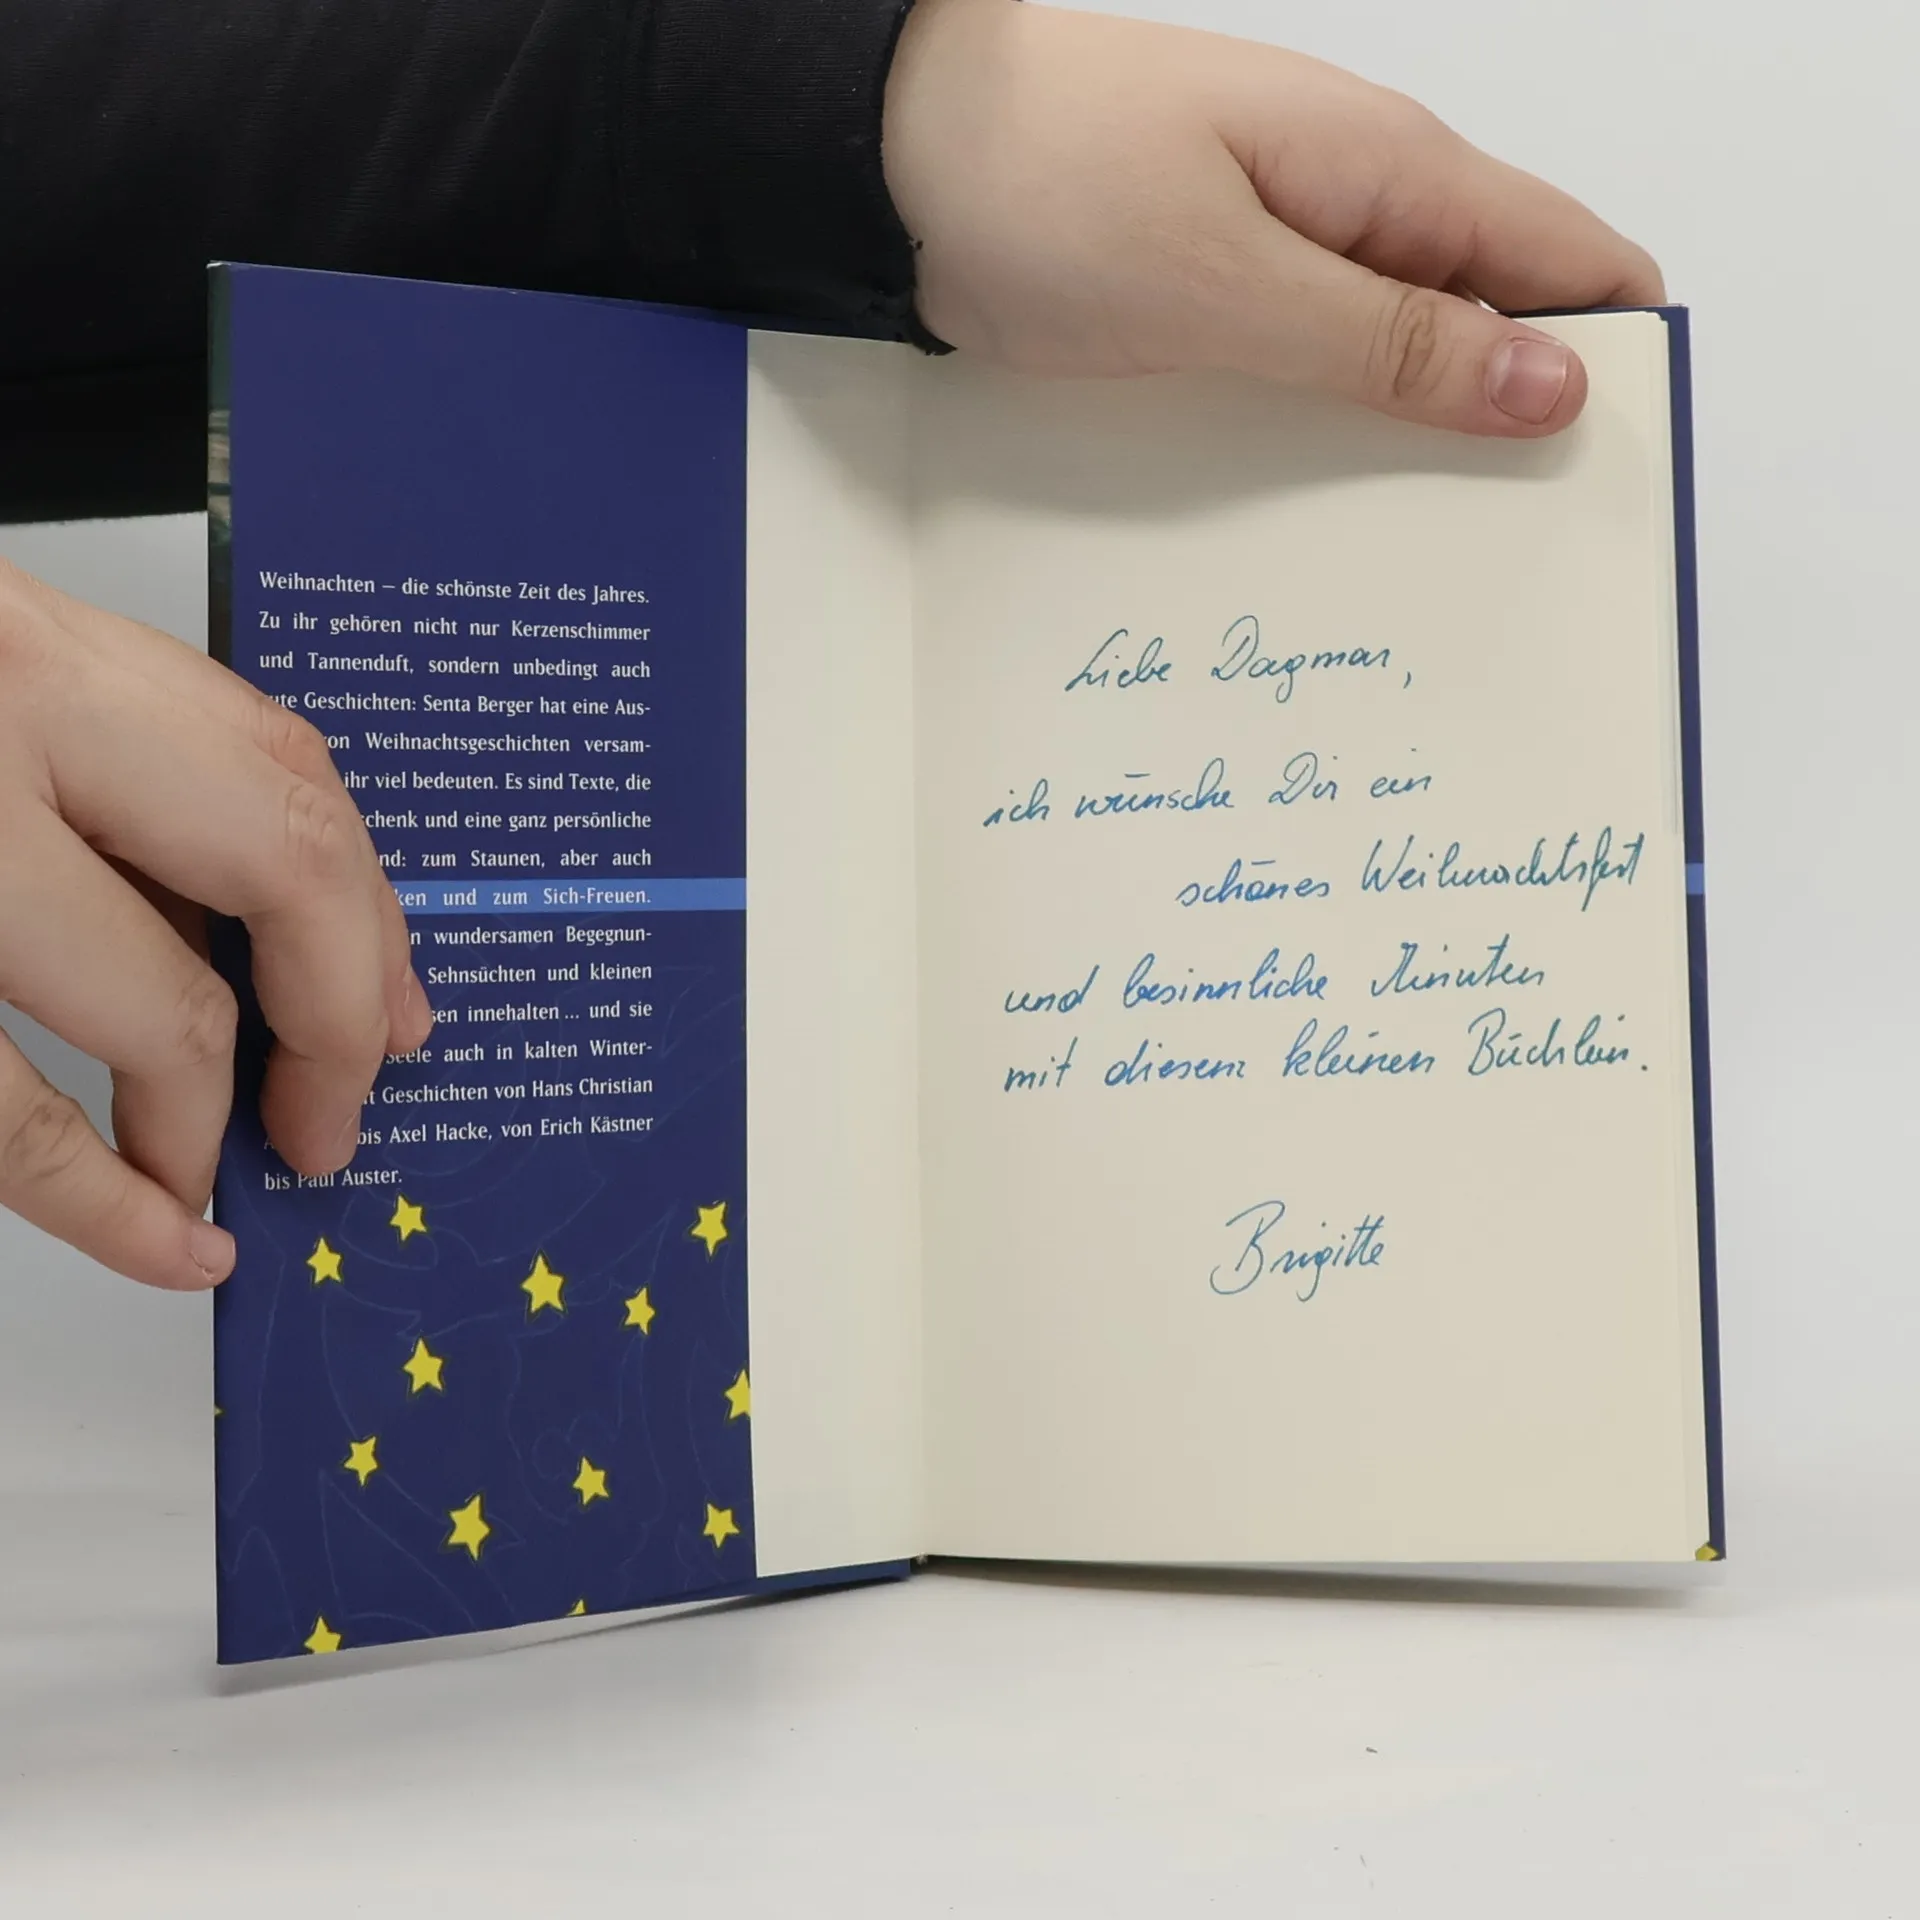 Weihnachten – die schönste Zeit des Jahres.
Zu ihr gehören nicht nur Kerzenschimmer
und Tannenduft, sondern unbedingt auch
Geschichten: Senta Berger hat eine Aus-
Weihnachtsgeschichten versam-
ihr viel bedeuten. Es sind Texte, die
und eine ganz persönliche
zum Staunen, aber auch
und zum Sich-Freuen.
wundersamen Begegnun-
Sehnsüchten und kleinen
innehalten ... und sie
Seele auch in kalten Winter-
Geschichten von Hans Christian
bis Axel Hacke, von Erich Kästner
bis Paul Auster.
Liebe Dagmar,
ich wünsche Dir ein
schönes Weihnachtsfest
und besinnliche Minuten
mit diesem kleinen Büchlein.
Brigitte